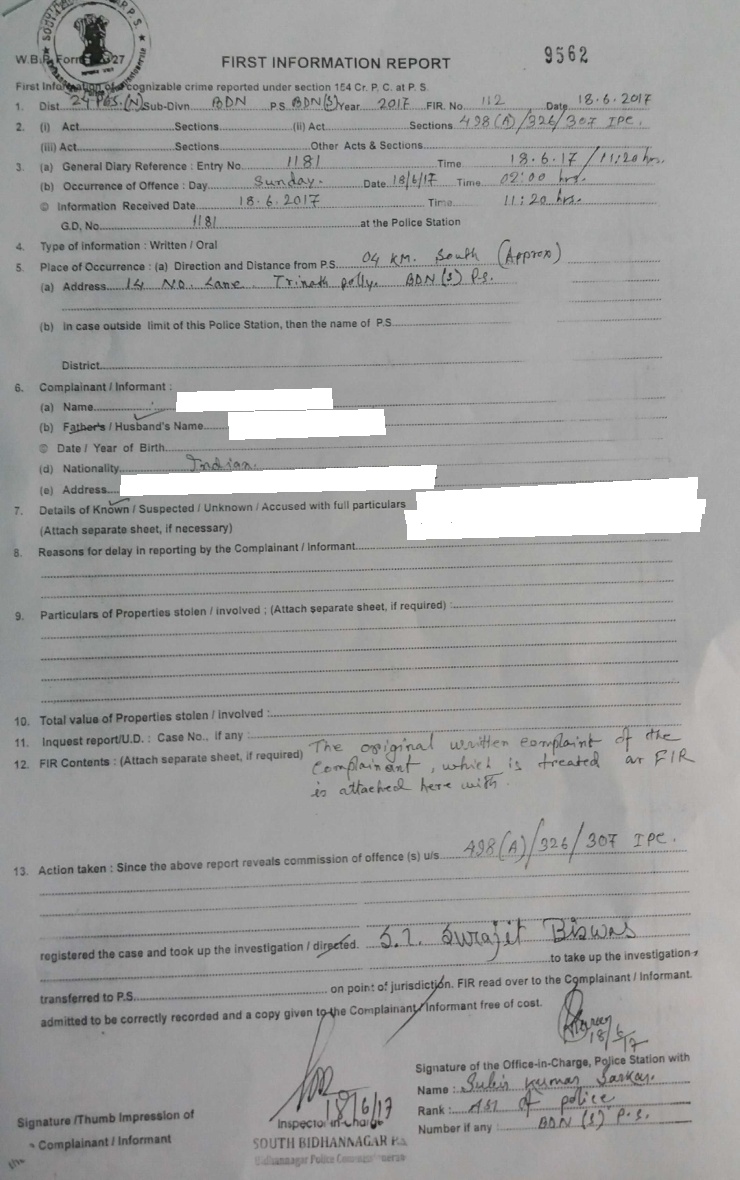 W.B.P. Form 27
FIRST INFORMATION REPORT
9562
First Information of cognizable crime reported under section 154 Cr. P. C. at P. S.
1. Dist 24 PGS.(N) Sub-Divn. BDN P.S. BDN(S) Year 2017 FIR. No. 112 Date 18.6.2017
2. (i) Act Sections (ii) Act Sections 498(A)/326/307 IPC.
(iii) Act Sections Other Acts & Sections
3. (a) General Diary Reference : Entry No. 1181 Time 18.6.17 / 11:20 hrs.
(b) Occurrence of Offence : Day Sunday. Date 18/6/17 Time 02:00 hrs.
© Information Received Date 18.6.2017 Time 11:20 hrs.
G.D, No. 1181 at the Police Station
4. Type of information : Written / Oral
5. Place of Occurrence : (a) Direction and Distance from P.S. 04 KM. South (Approx)
(a) Address 14 No. Lane. Trinath polly. BDN(S) P.S.
(b) In case outside limit of this Police Station, then the name of P.S
District
6. Complainant / Informant :
(a) Name
(b) Father's / Husband's Name
© Date / Year of Birth
(d) Nationality Indian.
(e) Address
7. Details of Known / Suspected / Unknown / Accused with full particulars
(Attach separate sheet, if necessary)
8. Reasons for delay in reporting by the Complainant / Informant
9. Particulars of Properties stolen / involved ; (Attach separate sheet, if required) :
10. Total value of Properties stolen / involved :
11. Inquest report/U.D. : Case No., if any :
12. FIR Contents : (Attach separate sheet, if required) The original written complaint of the
complainant, which is treated as FIR
is attached here with.
13. Action taken : Since the above report reveals commission of offence (s) u/s 498(A)/326/307 IPC.
registered the case and took up the investigation / directed. S.I. Surajit Biswas
to take up the investigation
transferred to P.S. on point of jurisdiction. FIR read over to the Complainant / Informant.
admitted to be correctly recorded and a copy given to the Complainant / Informant free of cost.
18/6/17
Signature of the Office-in-Charge, Police Station with
Name : Subir Kumar Sarkar.
Rank : ASI of police
Number if any : BDN (S) P.S.
18/6/17
Inspector in-Charge
SOUTH BIDHANNAGAR P.S.
Bidhannagar Police Commissionerate
Signature /Thumb Impression of
Complainant / Informant